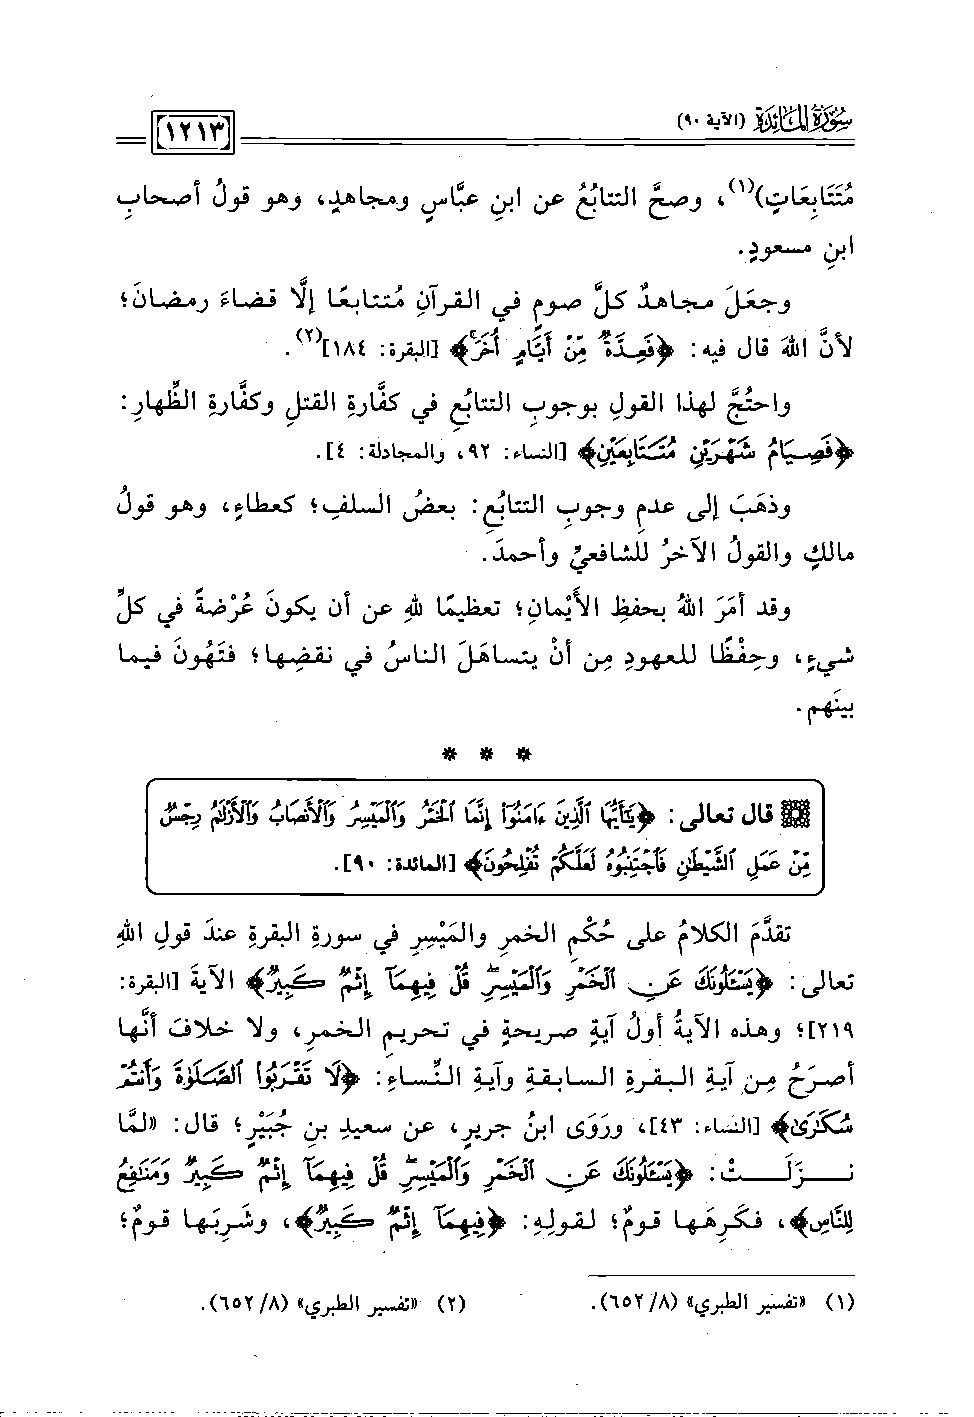 سُورَةُ المَائِدَةِ (الآية ٩٠)
[١٢١٣]
مُتَتَابِعَاتٍ)(١)، وصحَّ التتابُعُ عن ابنِ عبَّاسٍ ومجاهدٍ، وهو قولُ أصحابِ
ابنِ مسعودٍ.
وجعَلَ مجاهدٌ كلَّ صومٍ في القرآنِ مُتتابعًا إلَّا قضاءَ رمضانَ؛
لأنَّ اللهَ قال فيه: ﴿فَعِدَّةٌ مِّنْ أَيَّامٍ أُخَرَ﴾ [البقرة: ١٨٤](٢).
واحتُجَّ لهذا القولِ بوجوبِ التتابُعِ في كفَّارةِ القتلِ وكفَّارةِ الظِّهارِ:
﴿فَصِيَامُ شَهْرَيْنِ مُتَتَابِعَيْنِ﴾ [النساء: ٩٢، والمجادلة: ٤].
وذهَبَ إلى عدمِ وجوبِ التتابُعِ: بعضُ السلفِ؛ كعطاءٍ، وهو قولُ
مالكٍ والقولُ الآخرُ للشافعيِّ وأحمدَ.
وقد أمَرَ اللهُ بحفظِ الأَيْمانِ؛ تعظيمًا للهِ عن أن يكونَ عُرْضةً في كلِّ
شيءٍ، وحِفْظًا للعهودِ مِن أنْ يتساهَلَ الناسُ في نقضِها؛ فتَهُونَ فيما
بينَهم.
* * *
قال تعالى: ﴿يَٰٓأَيُّهَا ٱلَّذِينَ ءَامَنُوٓا۟ إِنَّمَا ٱلْخَمْرُ وَٱلْمَيْسِرُ وَٱلْأَنصَابُ وَٱلْأَزْلَٰمُ رِجْسٌ
مِّنْ عَمَلِ ٱلشَّيْطَٰنِ فَٱجْتَنِبُوهُ لَعَلَّكُمْ تُفْلِحُونَ﴾ [المائدة: ٩٠].
تقدَّمَ الكلامُ على حُكْمِ الخمرِ والمَيْسِرِ في سورةِ البقرةِ عندَ قولِ اللهِ
تعالى: ﴿يَسْـَٔلُونَكَ عَنِ ٱلْخَمْرِ وَٱلْمَيْسِرِ ۖ قُلْ فِيهِمَآ إِثْمٌ كَبِيرٌ﴾ الآيةَ [البقرة:
٢١٩]؛ وهذه الآيةُ أولُ آيةٍ صريحةٍ في تحريمِ الخمرِ، ولا خلافَ أنَّها
أصرَحُ مِن آيةِ البقرةِ السابقةِ وآيةِ النِّساءِ: ﴿لَا تَقْرَبُوا۟ ٱلصَّلَوٰةَ وَأَنتُمْ
سُكَٰرَىٰ﴾ [النساء: ٤٣]، ورَوَى ابنُ جريرٍ، عن سعيدِ بنِ جُبَيْرٍ؛ قال: «لمَّا
نـزَلَـتْ: ﴿يَسْـَٔلُونَكَ عَنِ ٱلْخَمْرِ وَٱلْمَيْسِرِ ۖ قُلْ فِيهِمَآ إِثْمٌ كَبِيرٌ وَمَنَٰفِعُ
لِلنَّاسِ﴾، فكَرِهَها قومٌ؛ لقولِهِ: ﴿فِيهِمَآ إِثْمٌ كَبِيرٌ﴾، وشَرِبَها قومٌ؛
(١) «تفسير الطبري» (٨/ ٦٥٢).
(٢) «تفسير الطبري» (٨/ ٦٥٢).